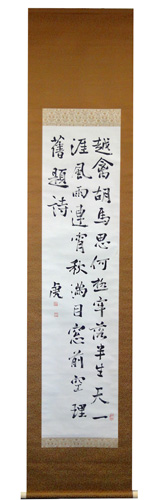 越禽胡馬思何極牢落半生天一
涯風雨連宵秋満目窓前空理
舊題詩